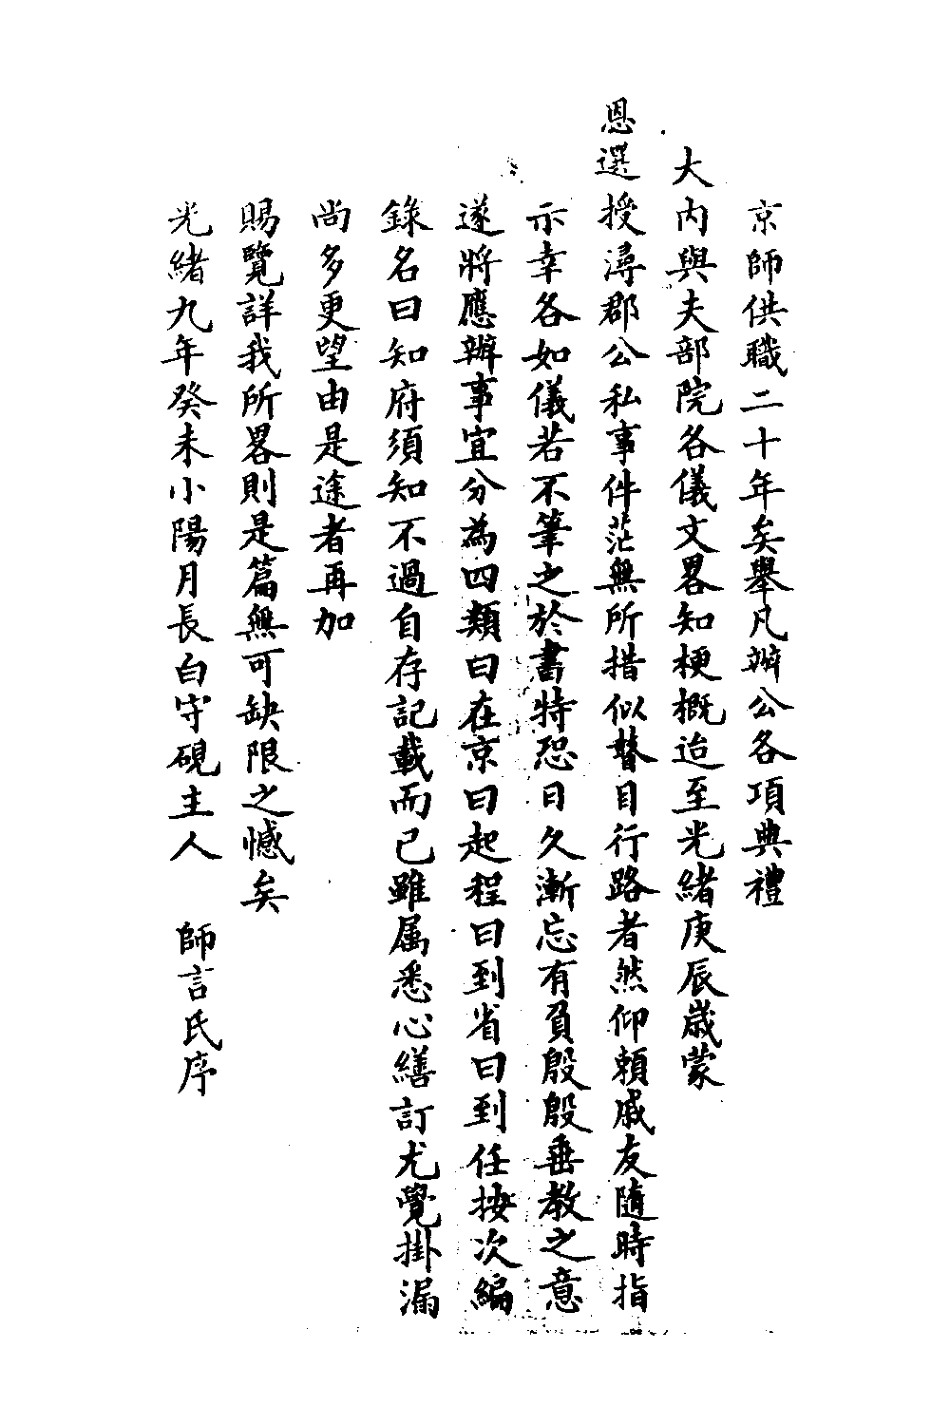 京師供職二十年矣舉凡辦公各項典禮
大內與夫部院各儀文畧知梗概迨至光緒庚辰歲蒙
恩選授潯郡公私事件茫無所措似瞽目行路者然仰賴戚友隨時指
示幸各如儀若不筆之於書特恐日久漸忘有負殷殷垂教之意
遂將應辦事宜分為四類曰在京曰起程曰到省曰到任按次編
錄名曰知府須知不過自存記載而已雖属悉心繕訂尤覺掛漏
尚多更望由是途者再加
賜覽詳我所畧則是篇無可缺限之憾矣
光緒九年癸未小陽月長白守硯主人 師言氏序